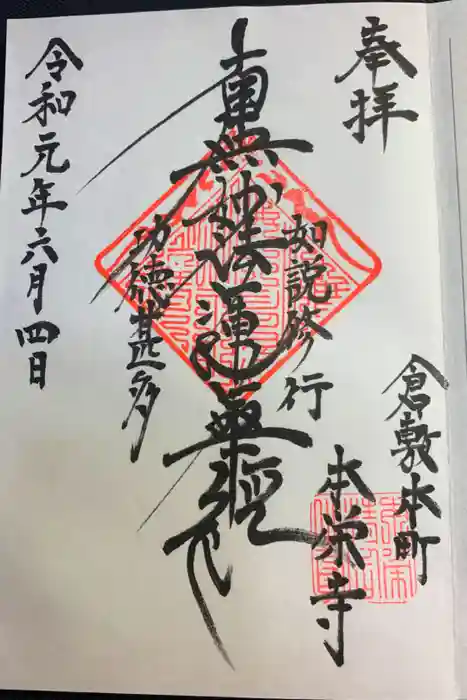 奉拝
倉敷本町
本栄寺
如説修行
南無妙法蓮華経
功徳甚多
令和元年六月四日